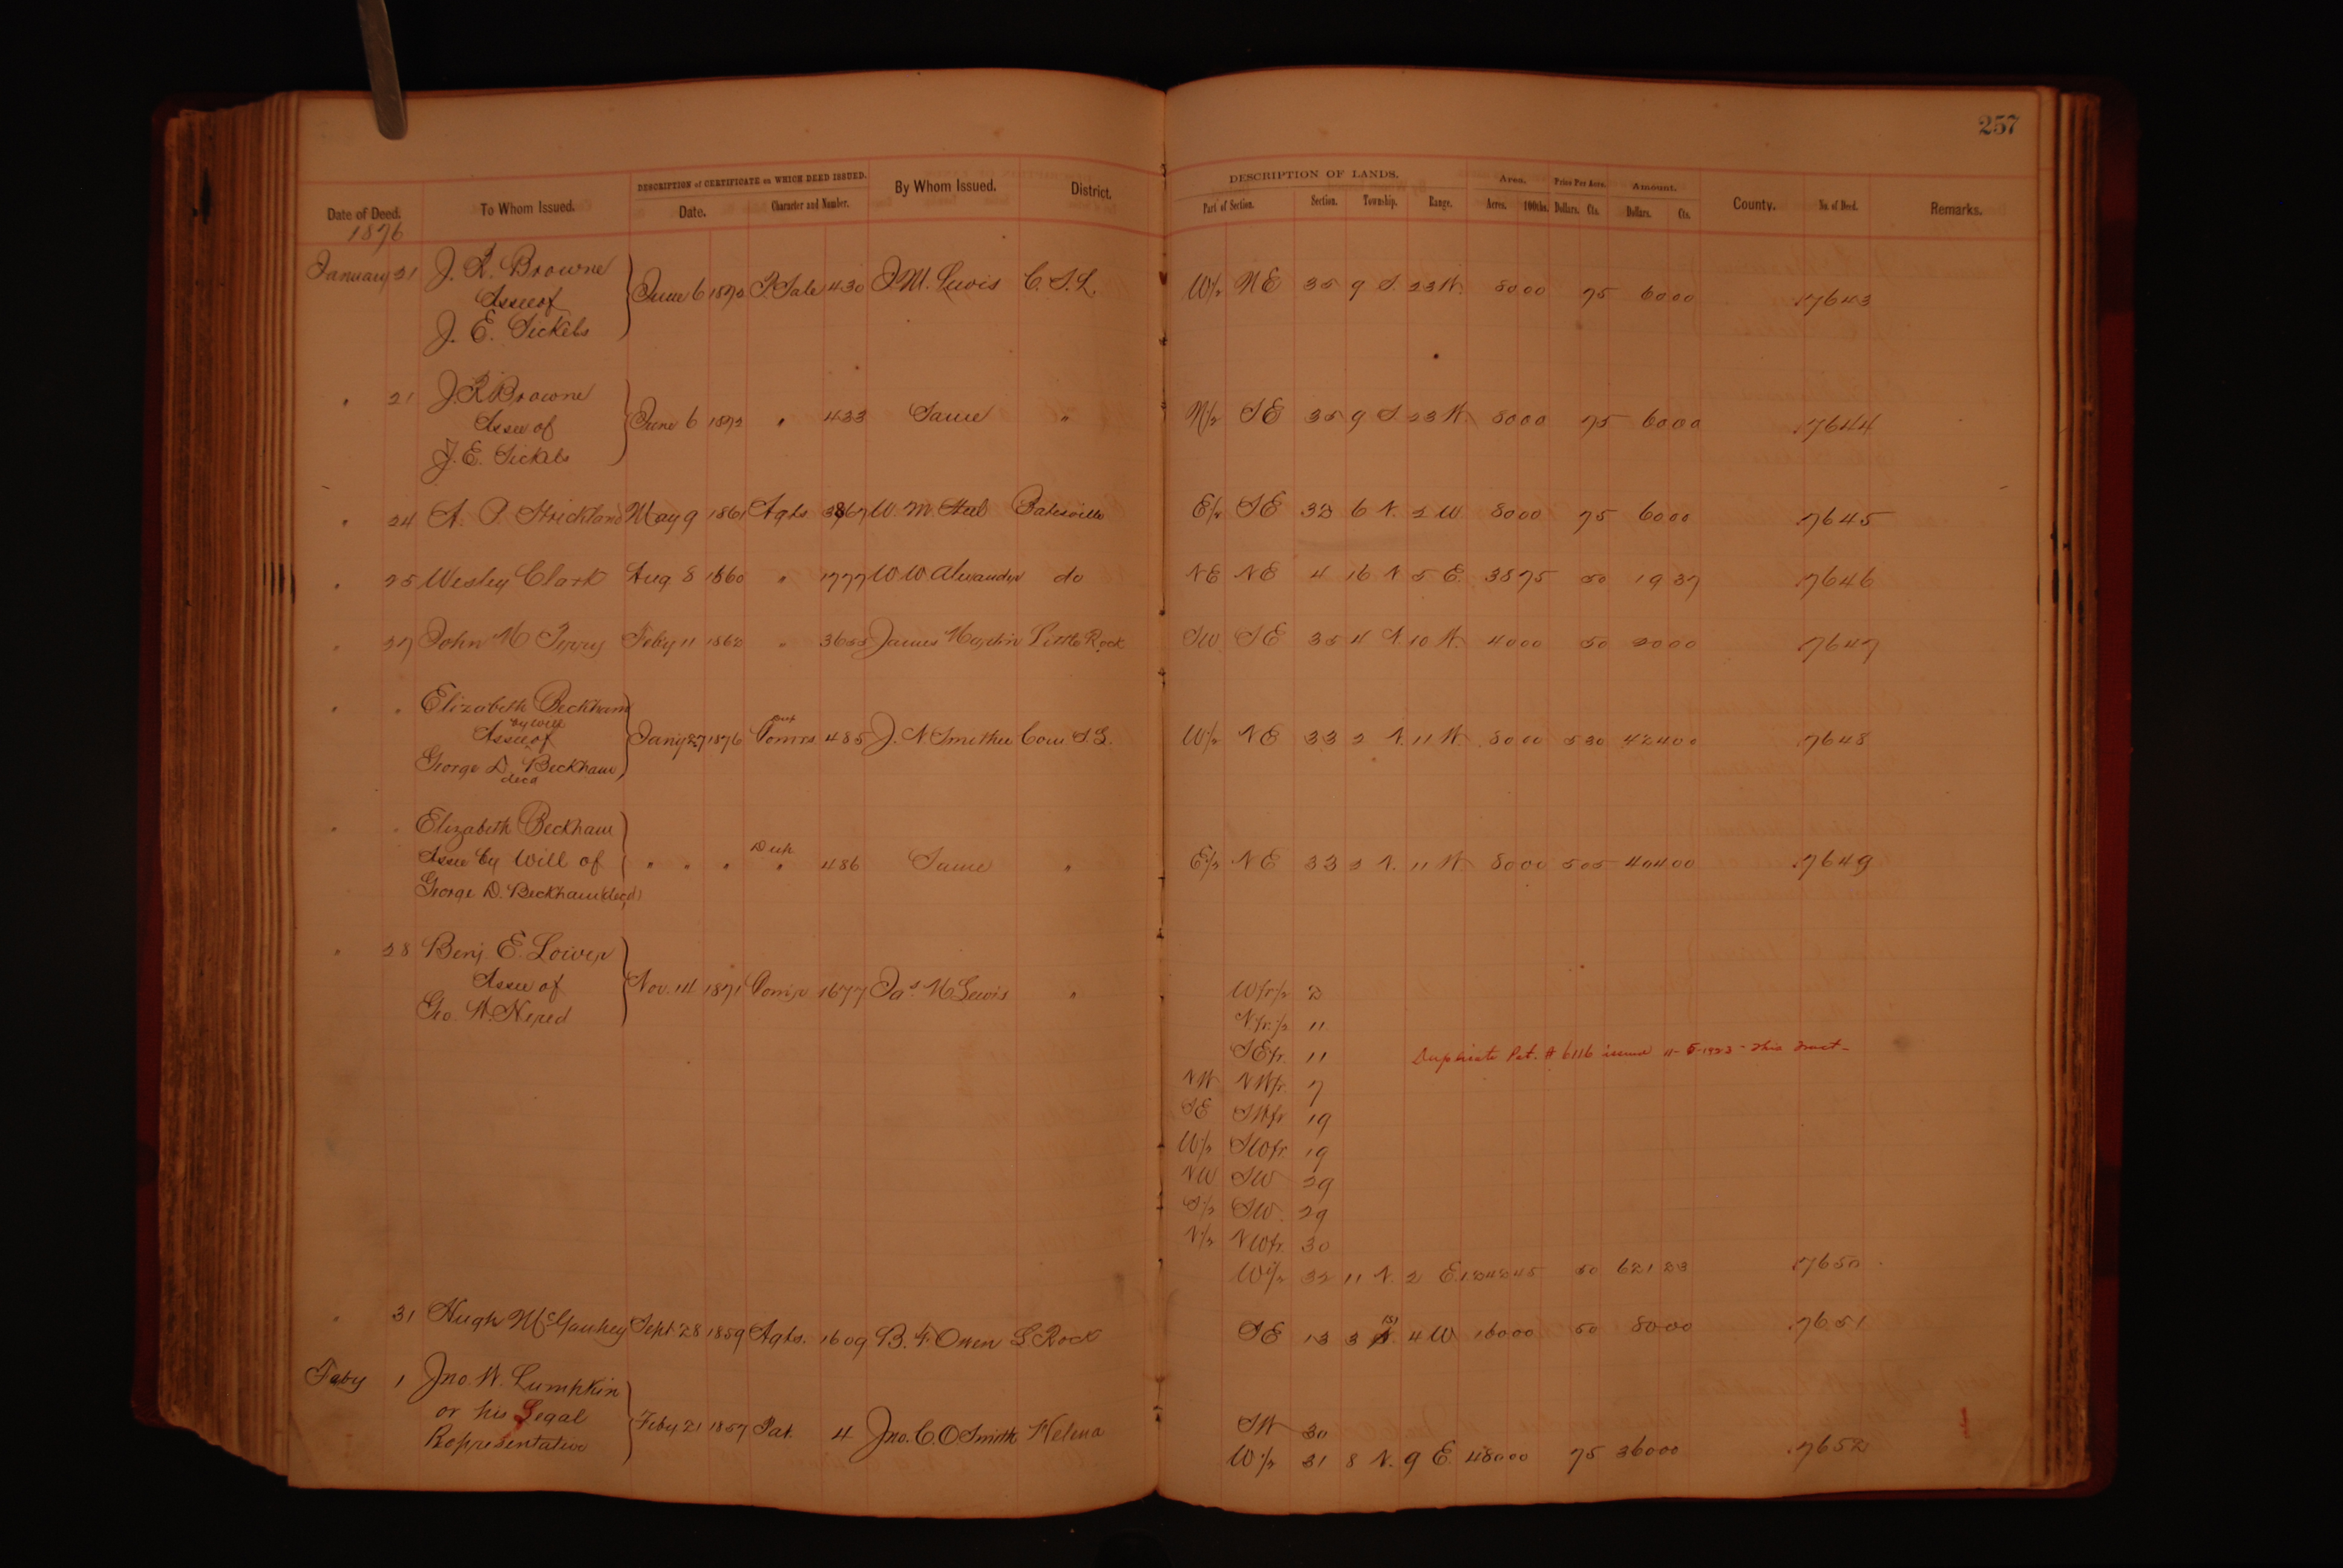 257
DESCRIPTION of CERTIFICATE on WHICH DEED ISSUED. DESCRIPTION OF LANDS. Area. Price Per Acre. Amount.
Date of Deed. To Whom Issued. Date. Character and Number. By Whom Issued. District. Part of Section. Section. Township. Range. Acres. 100ths. Dollars. Cts. Dollars. Cts. County. No. of Deed. Remarks.
1876
January 21 J. R. Browne
Assee of June 6 1872 P. Sale 430 J. M. Lewis C. S. L. W/2 NE 35 9 S. 23 W. 80 00 75 60 00 7643
J. E. Sickels
" 21 J. R. Browne
Assee of June 6 1872 " 433 Same " N/2 SE 35 9 S 23 W. 80 00 75 60 00 7644
J. E. Sickels
" 24 A. P. Strickland May 9 1861 Agts 3867 W. M. Steel Batesville E/2 SE 33 6 N. 2 W. 80 00 75 60 00 7645
" 25 Wesley Clark Aug 8 1860 " 1777 W W Alexander do NE NE 4 16 N 5 E. 38 75 50 19 37 7646
" 27 John M Perry Feby 11 1862 " 3655 James Martin Little Rock SW SE 35 4 N. 10 W. 40 00 50 20 00 7647
" " Elizabeth Beckham
by will
Assee of Jany 27 1876 Comrs 485 J. N Smithee Com S. L. W/2 NE 33 2 N. 11 W. 80 00 5 30 424 00 7648
George D. Beckham
decd
" " Elizabeth Beckham
Assee by Will of " " " Dup " 486 Same " E/2 NE 33 2 N. 11 W. 80 00 5 05 404 00 7649
George D. Beckham (decd)
" 28 Benj E. Lower
Assee of Nov. 14 1871 1677 Jas. M Lewis " W fr /2 2
Geo. W. N. fr. /2 11
SE fr. 11 Duplicate Pat. # 6116 issued 11-5-1923 - This Tract -
NW NW fr. 7
SE SW fr 19
W/2 SW fr 19
NW SW 29
S/2 SW. 29
N/2 NW fr. 30
W/2 32 11 N. 2 E. 1242 45 50 621 23 7650
" 31 Hugh McGaukey Sept. 28 1859 Agts. 1609 B. F. Owen L Rock SE 13 3 (S) N. 4 W 160 00 50 80 00 7651
Feby 1 Jno. W. Lumpkin
or his Legal Feby 21 1857 Pat. 4 Jno. C. O Smith Helena SW 30
Representative W/2 31 8 N. 9 E. 480 00 75 360 00 7652